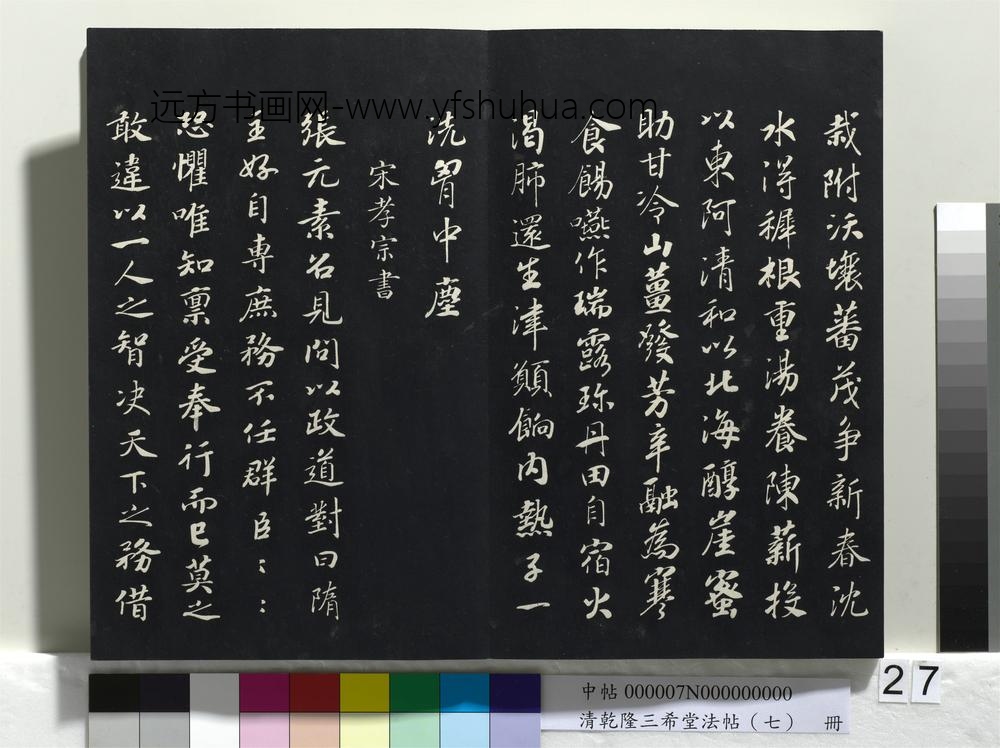 栽附沃壤蕃茂争新春沈
水得穉根重湯養陳薪投
以東阿清和以北海醇崖蜜
助甘冷山薑發芳辛融為寒
食餳嚥作瑞露珎丹田自宿火
渴肺還生津願餉内熱子一
洗胷中塵
宋孝宗書
張元素召見問以政道對曰隋
主好自專庶務不任羣臣：：
恐懼唯知禀受奉行而已莫之
敢違以一人之智决天下之務借
远方书画网-www.yfshuhua.com
27
中帖 000007N000000000
清乾隆三希堂法帖（七） 冊